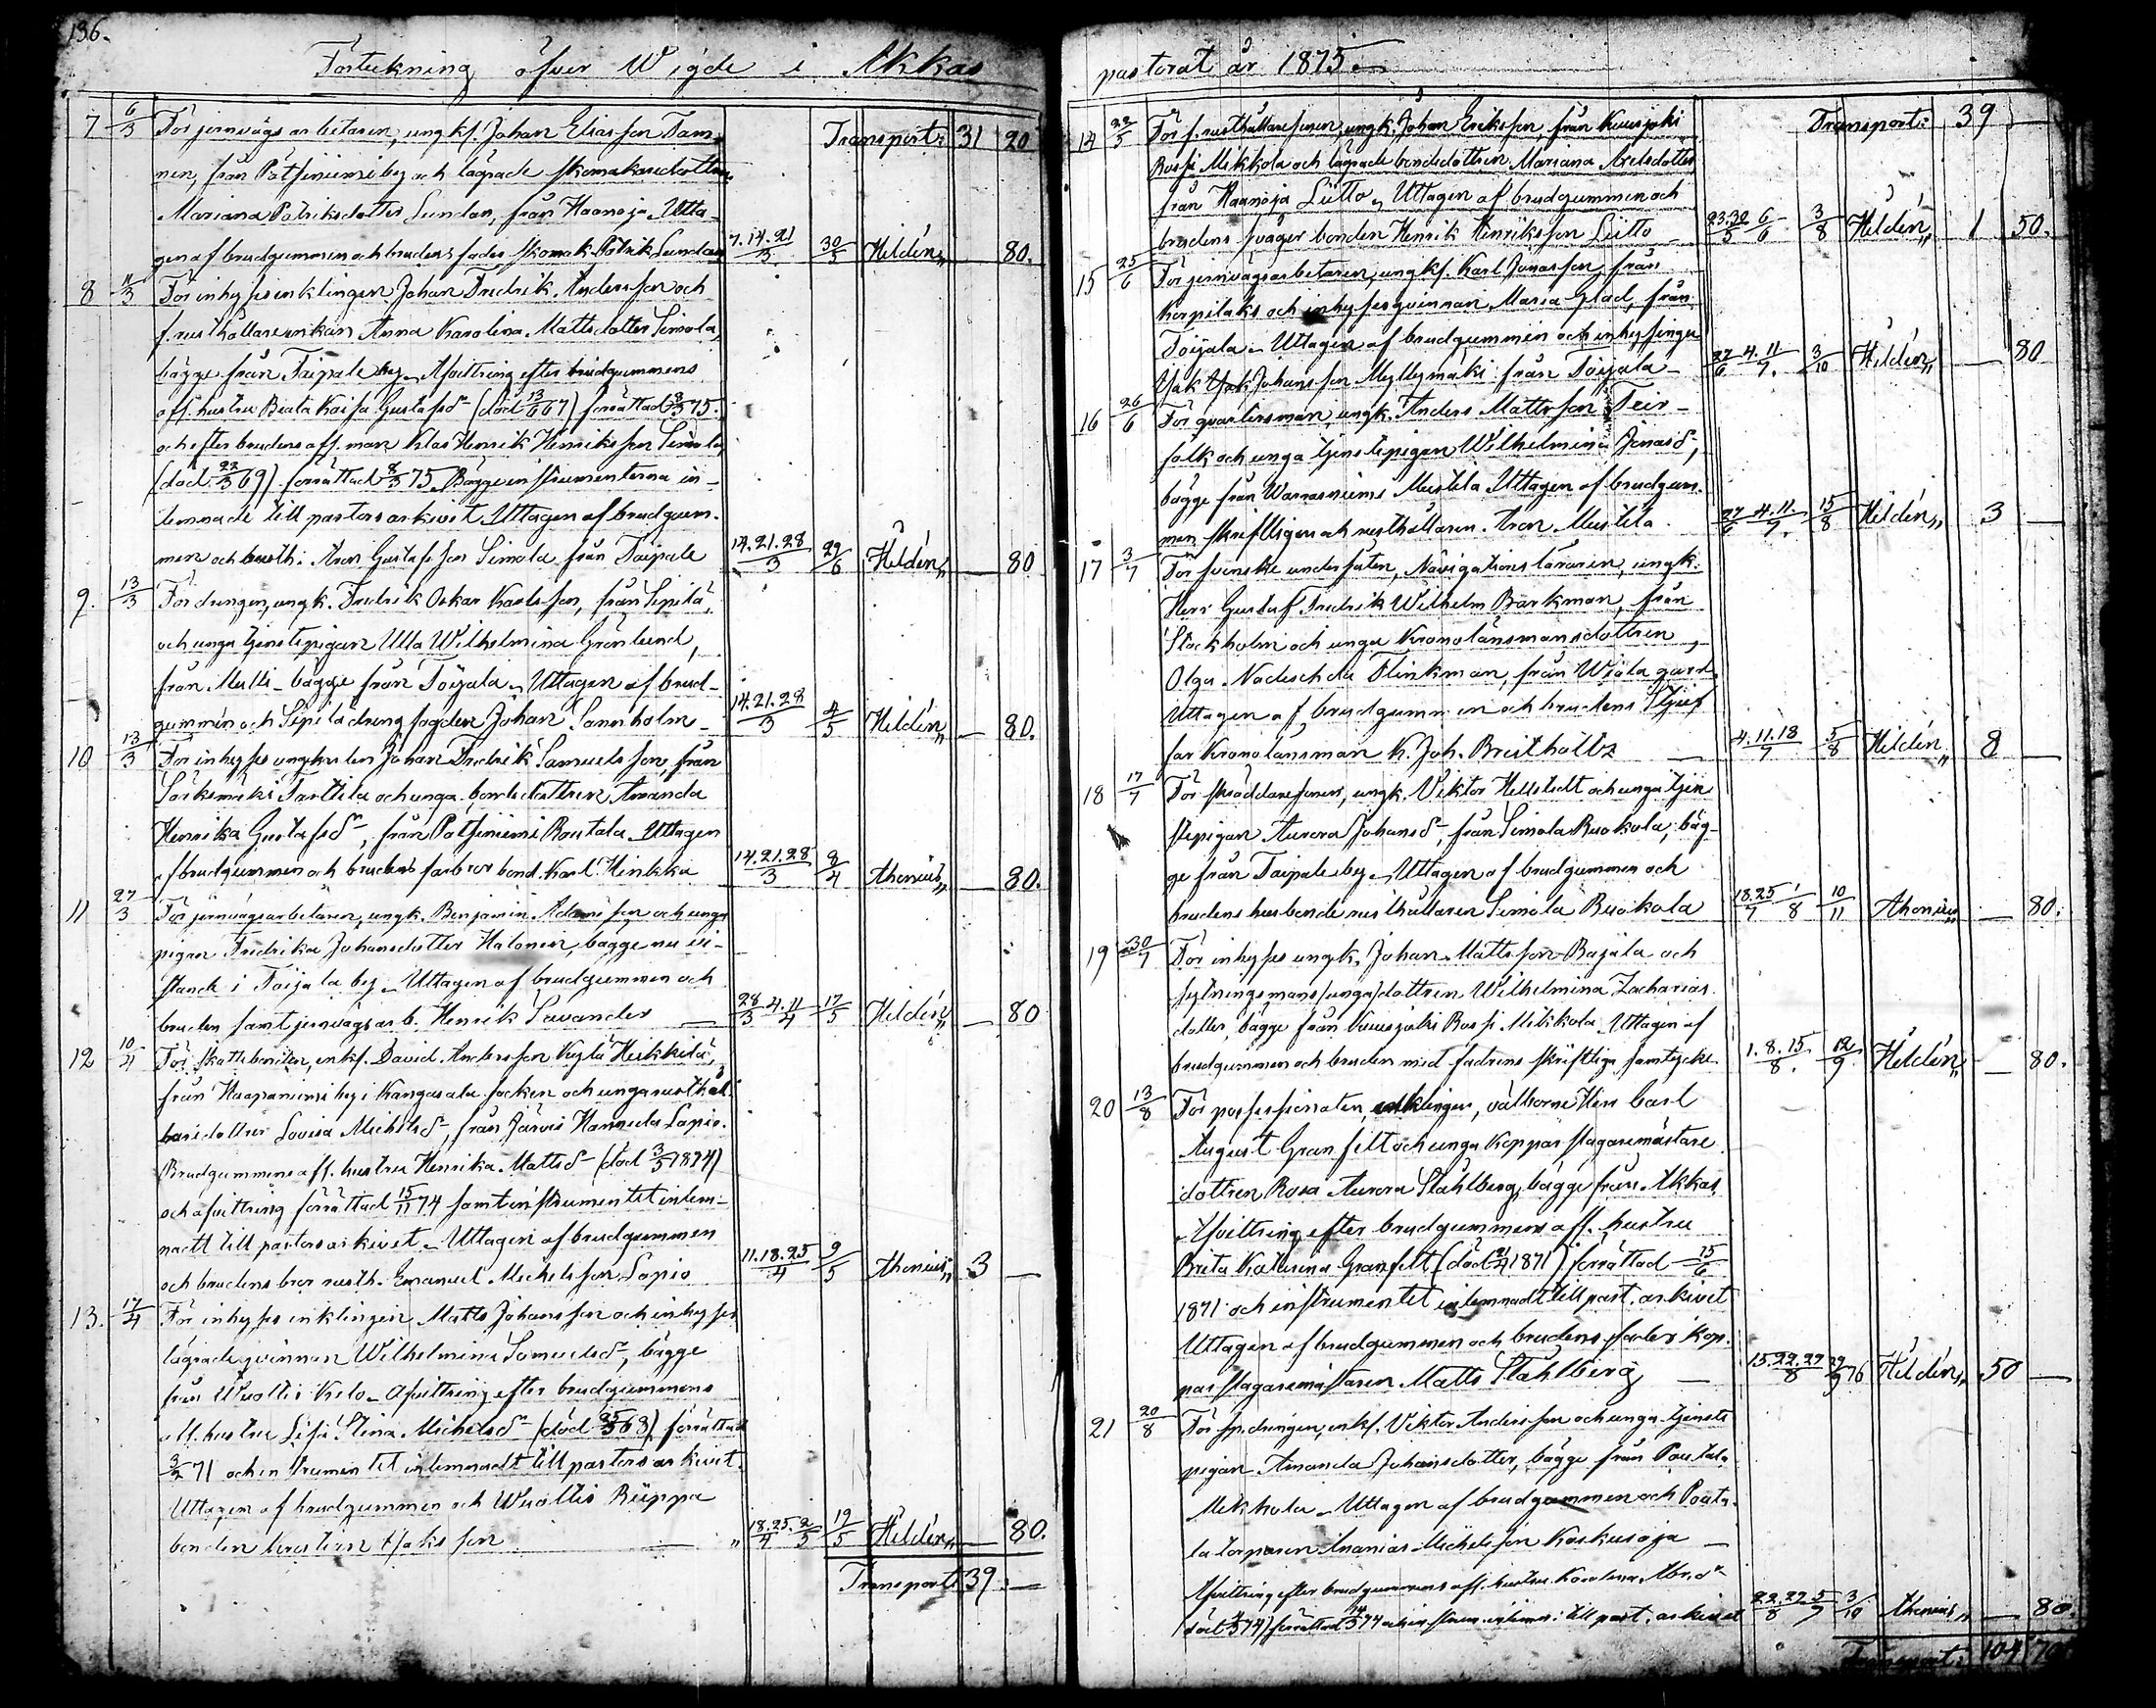 136.
Förtekning öfver Wigde i Akkas
7 6/3 För jernvägsarbetaren, ungk. Johan Eliasson Tam- Transport: 31 20
nen, från Pätsiniemi by och lägrade skomakaredottren
Mariana Patriksdotter Lundan, från Haanoja. Utta-
gen af brudgummen och brudens fader skomak. Patrik Lundan 7.14.21/3 30/5 Hildén „ 80.
8 11/3 För inhyses enklingen Johan Fredrik Andersson och
f. rusthållareenkan Anna Karolina Mattsdotter Simola,
bägge från Taipale by. Afvittring efter brudgummens
afl. hustru Beata Kaisa Gustafsdr (död 13/6 67) förrättad 8/3 75.
och efter brudens afl. man Klas Henrik Henriksson Simola
(död 22/3 69) förrättad 8/3 75. Bägge instrumenterna in-
lemnade till pastorsarkivet. Uttagen af brudgum-
men och rusth. Aron Gustafsson Simola från Taipale 14.21.28/3 29/6 Hildén „ — 80
9. 13/3 För drengen, ungk. Fredrik Oskar Karlsson, från Sipilä,
och unga tjenstepigan Ulla Wilhelmina Grönlund,
från Mulli - bägge från Toijala. Uttagen af brud-
gummen och Sipilä drengfogden Johan Sannholm 14.21.28/3 4/5 Hildén „ — 80.
10 13/3 För inhyses ungkarlen Johan Fredrik Samuelsson, från
Särkimäki Tarttila och unga bondedottren Amanda
Henrika Gustafsdr, från Pätsiniemi Routala. Uttagen
af brudgummen och brudens farbror bond. Karl Hinkka 14.21.28/3 8/4 Ahonius „ — 80.
11 27/3 För jernvägsarbetaren, ungk. Benjamin Adamsson och unga
pigan Fredrika Johansdotter Halonen, bägge nu vi-
stande i Toijala by. Uttagen af brudgummen och
bruden samt jernvägsarb. Henrik Savander — 28/3 4.11/4 17/5 Hildén „ — 80
12 10/4 För skattebonden, enkl. David Andersson Kylä Heikkilä,
från Haapaniemi by i Kangasala socken och unga rusthål-
laredottren Lovisa Michelsdr, från Järvis Hannula Lapio.
Brudgummens afl. hustru Henrika Mattsdr (död 3/5 1874)
och afvittring förrättad 15/11 74 samt instrumentet inlem-
nadt till pastorsarkivet. Uttagen af brudgummen
och brudens bror rusth. Emanuel Michelsson Lapio 11.18.25/4 9/5 Ahonius „ 3 —
13. 17/4 För inhyses enklingen Matts Johansson och inhyses
lägrade qvinnan Wilhelmina Samuelsdr, bägge
från Wuoltis Kelo. Afvittring efter brudgummens
afl. hustru Lisa Stina Michelsdr (död 25/3 68) förrättad
3/2 71 och instrumentet inlemnadt till pastorsarkivet.
Uttagen af brudgummen och Wuoltis Riippa
bonden Isaksson — „ 18.25/4 2/5 19/5 Hildén „ — 80.
Transport 39. —
pastorat år 1875.
14 22/5 För f. rusthållaresonen, ungk. Johan Eriksson, från Kuusjoki Transport: 39 —
Rossi Mikkola och lägrade bondedottren Mariana Axelsdotter
från Haanoja Liitto. Uttagen af brudgummen och
brudens svåger bonden Henrik Henriksson Liitto — 23.30/5 6/6 3/8 Hildén „ 1 50.
15 25/6 För jernvägsarbetaren, ungk. Karl Jonasson, från
Korpilaks och inhysesqvinnan Maria Glad, från
Toijala. Uttagen af brudgummen och inhysingen
Isak Johansson Myllymäki från Toijala — 27/6 4.11/7. 3/10 Hildén „ — 80
16 26/6 För qvartersman, ungk. Anders Mattsson Teir-
falk och unga tjenstepigan Wilhelmina Jonasdr,
bägge från Warrasniemi Mustila. Uttagen af brudgum-
men skriftligen och rusthållaren Aron Mustila. 27/6 4.11./7. 15/8 Hildén „ 3 —
17 3/7 För svenske undersåten, Navigationsläraren, ungk.
Herr Gustaf Fredrik Wilhelm Barkman, från
Stockholm och unga Kronolänsmansdottren,
Olga Nadeschda Flinkman, från Wiala gård.
Uttagen af brudgummen och brudens Stjuf-
far Kronolänsman K. Joh. Breitholtz — 4.11.18/7 5/8 Hildén „ 8 —
18 17/7 För skräddaresonen, ungk. Viktor Hellstedt och unga tjen-
stepigan Aurora Johansdr, från Simola Ruokola, bäg-
ge från Taipale by. Uttagen af brudgummen och
brudens husbonde rusthållaren Simola Ruokola 18.25/7 1/8 10/11 Ahonius „ — 80.
19 30/7 För inhyses ungk. Johan Mattsson Rajala och
sytningsmans (unga) dottren Wilhelmina Zacharias-
dotter, bägge från Kuusjoki Rossi Mikkola. Uttagen af
brudgummen och bruden med fadrens skriftliga samtycke. 1.8.15/8. 12/9 Hildén „ — 80.
20 13/8 För possessionaten, enklingen, välborne Herr Carl
August Granfelt och unga Kopparslagaremästare
dottren Rosa Aurora Ståhlberg, bägge från Akkas.
Afvittring efter brudgummens afl. hustru
Brita Katarina Granfelt (död 21/4 1871) förrättad 15/6
1871 och instrumentet inlemnadt till past. arkivet
Uttagen af brudgummen och brudens fader kop-
parslagaremästaren Matts Ståhlberg — 15.22.29/8 29/9 76 Hildén „ 50 —
21 20/8 För sp. drengen, enkl. Viktor Andersson och unga tjenste-
pigan Amanda Johansdotter, bägge från Pouttala
Mikkola. Uttagen af brudgummen och Poutta-
la torparen Ananias Michelsson Koskusoja —
Afvittring efter brudgummens afl. hustru Karolina Abr.dr
till past. arkivet 22.29/8 5/9 3/10 Ahonius „ — 80.
Transport: 104 70